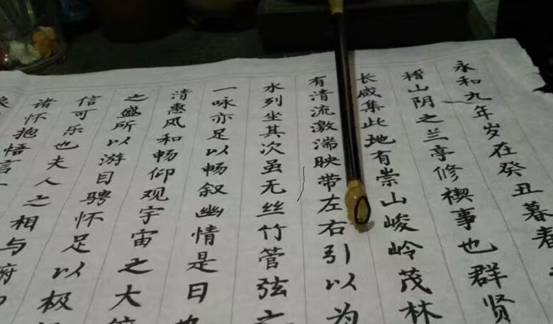 永和九年岁在癸丑暮春
稽山阴之兰亭修禊事也群贤
长咸集此地有崇山峻岭茂林
有清流激湍映带左右引以为
水列坐其次虽无丝竹管弦之
一咏亦足以畅叙幽情是日
清惠风和畅仰观宇宙之大
之盛所以游目骋怀足以极
信可乐也夫人之相与俯
诸怀抱悟言一